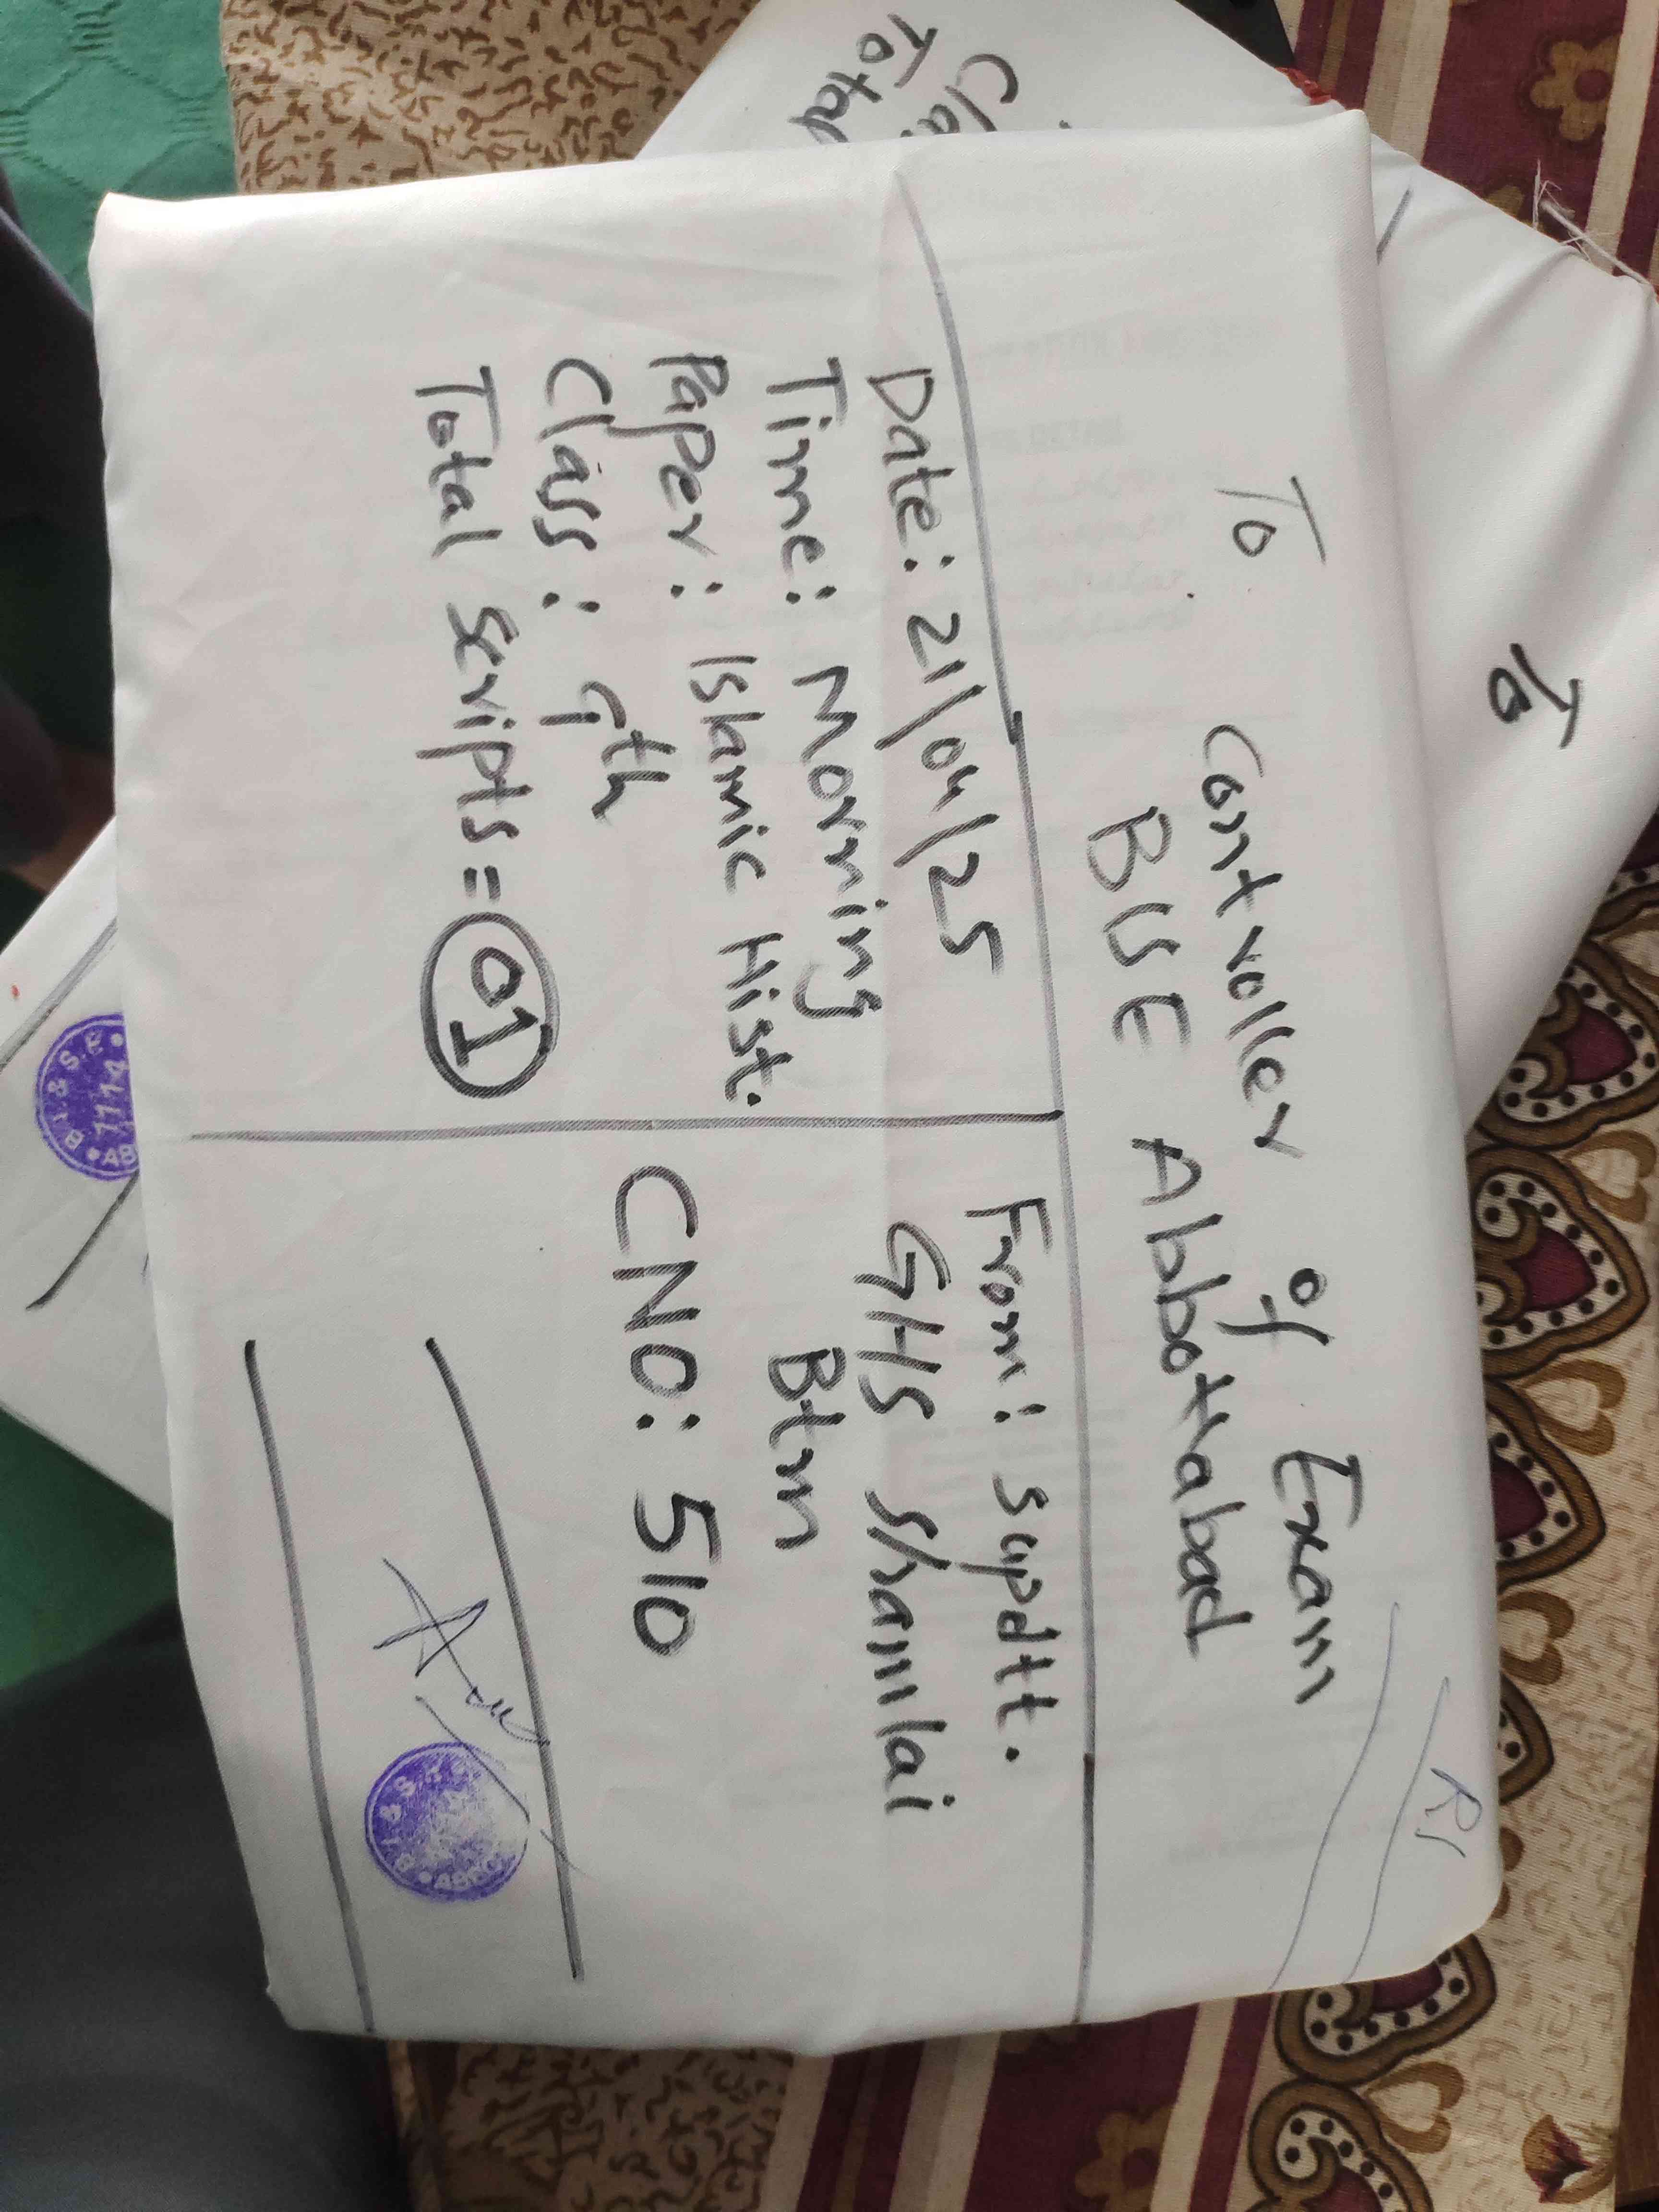 To
Controller of Exam
BISE Abbottabad
Date: 21/04/25
Time: Morning
Paper: Islamic Hist.
Class: 9th
Total Scripts = 01
From: Supdtt.
GHS Shamlai
Btm
CNO: 510
To
Total
B.I & S.E
1114